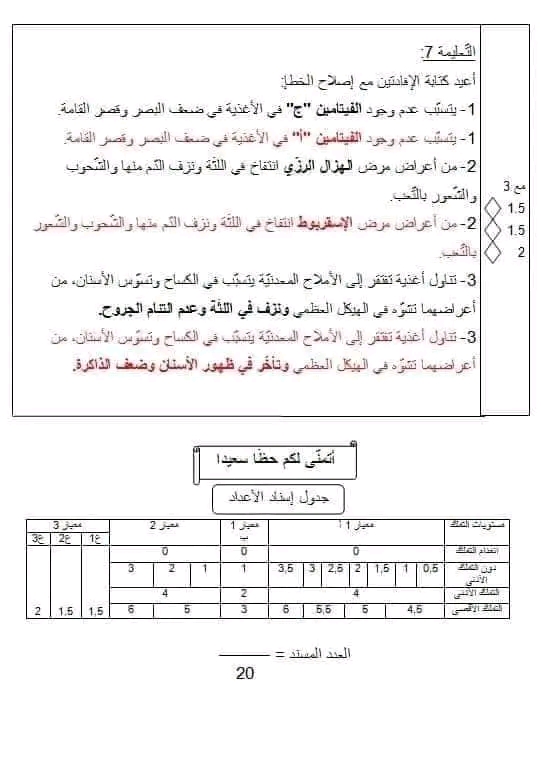 التّعليمة 7:
أعيد كتابة الإفادتين مع إصلاح الخطإ:
1- يتسبّب عدم وجود الفيتامين "ج" في الأغذية في ضعف البصر وقصر القامة.
1- يتسبّب عدم وجود الفيتامين "أ" في الأغذية في ضعف البصر وقصر القامة.
2- من أعراض مرض الهزال الرزّي انتفاخ في اللثّة ونزف الدّم منها والشّحوب
والشّعور بالتّعب.
2- من أعراض مرض الإسقربوط انتفاخ في اللثّة ونزف الدّم منها والشّحوب والشّعور
بالتّعب.
3- تناول أغذية تفتقر إلى الأملاح المعدنيّة يتسبّب في الكساح وتسوّس الأسنان، من
أعراضهما تشوّه في الهيكل العظمي ونزف في اللثّة وعدم التئام الجروح.
3- تناول أغذية تفتقر إلى الأملاح المعدنيّة يتسبّب في الكساح وتسوّس الأسنان، من
أعراضهما تشوّه في الهيكل العظمي وتأخّر في ظهور الأسنان وضعف الذاكرة.
مع 3
1.5
1.5
2
أتمنّى لكم حظّا سعيدا
جدول إسناد الأعداد
مستويات التملك معيار 1 أ معيار 1 ب معيار 2 معيار 3
ع1 ع2 ع3
انعدام التملك 0 0 0
دون التملك الأدنى 0,5 1 1,5 2 2,5 3 3,5 1 1 2 3
التملك الأدنى 4 2 4
التملك الأقصى 4,5 5 5,5 6 3 5 6 1,5 1.5 2
العدد المسند = ـــــــــ
20